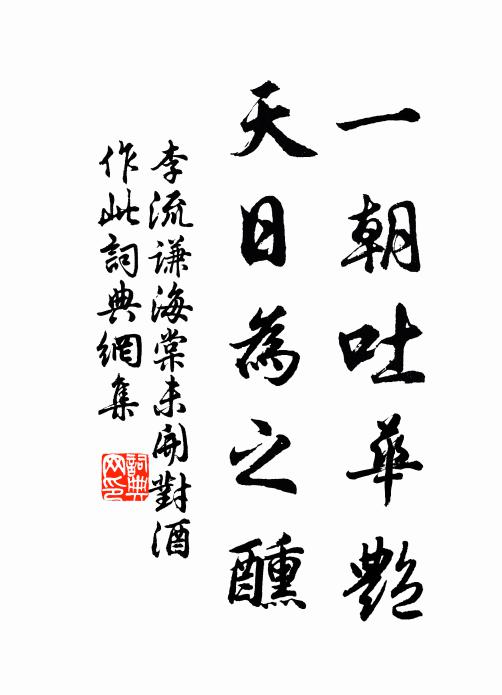 一朝吐華艷
天日為之醺
李流謙海棠未開對酒
作此詞典網集
詞典
网印